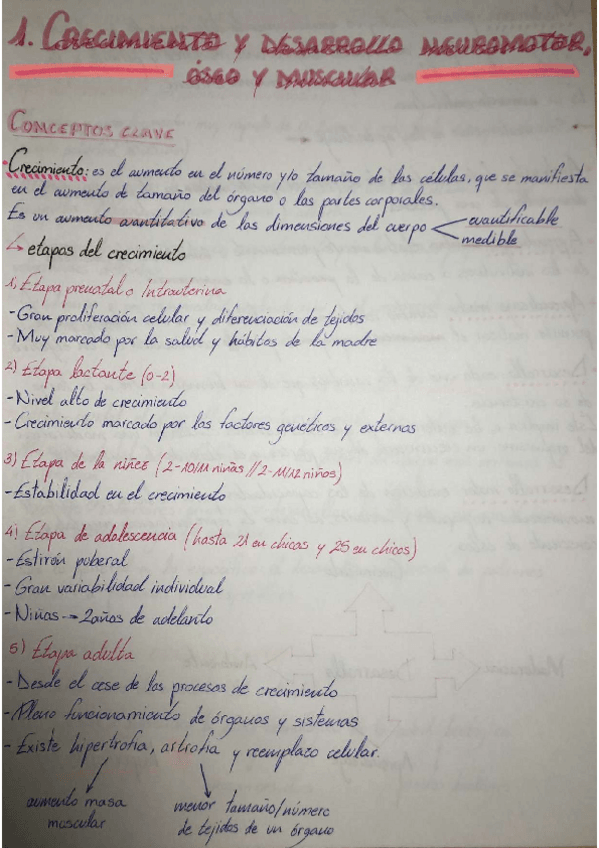 1. CRECIMIENTO Y DESARROLLO NEUROMOTOR,
ÓSEO Y MUSCULAR
CONCEPTOS CLAVE
Crecimiento: es el aumento en el número y/o tamaño de las células, que se manifiesta
en el aumento de tamaño del órgano o las partes corporales.
Es un aumento cuantitativo de las dimensiones del cuerpo cuantificable
medible
↳ etapas del crecimiento
1) Etapa prenatal o Intrauterina
- Gran proliferación celular y diferenciación de tejidos
- Muy marcado por la salud y hábitos de la madre
2) Etapa lactante (0-2)
- Nivel alto de crecimiento
- Crecimiento marcado por los factores genéticos y externos
3) Etapa de la niñez (2-10/11 niñas // 2-11/12 niños)
- Estabilidad en el crecimiento
4) Etapa de adolescencia (hasta 21 en chicas y 25 en chicos)
- Estirón puberal
- Gran variabilidad individual
- Niñas → 2 años de adelanto
5) Etapa adulta
- Desde el cese de los procesos de crecimiento
- Pleno funcionamiento de órganos y sistemas
- Existe hipertrofia, artrofia y reemplazo celular.
aumento masa
muscular
menor tamaño/número
de tejidos de un órgano